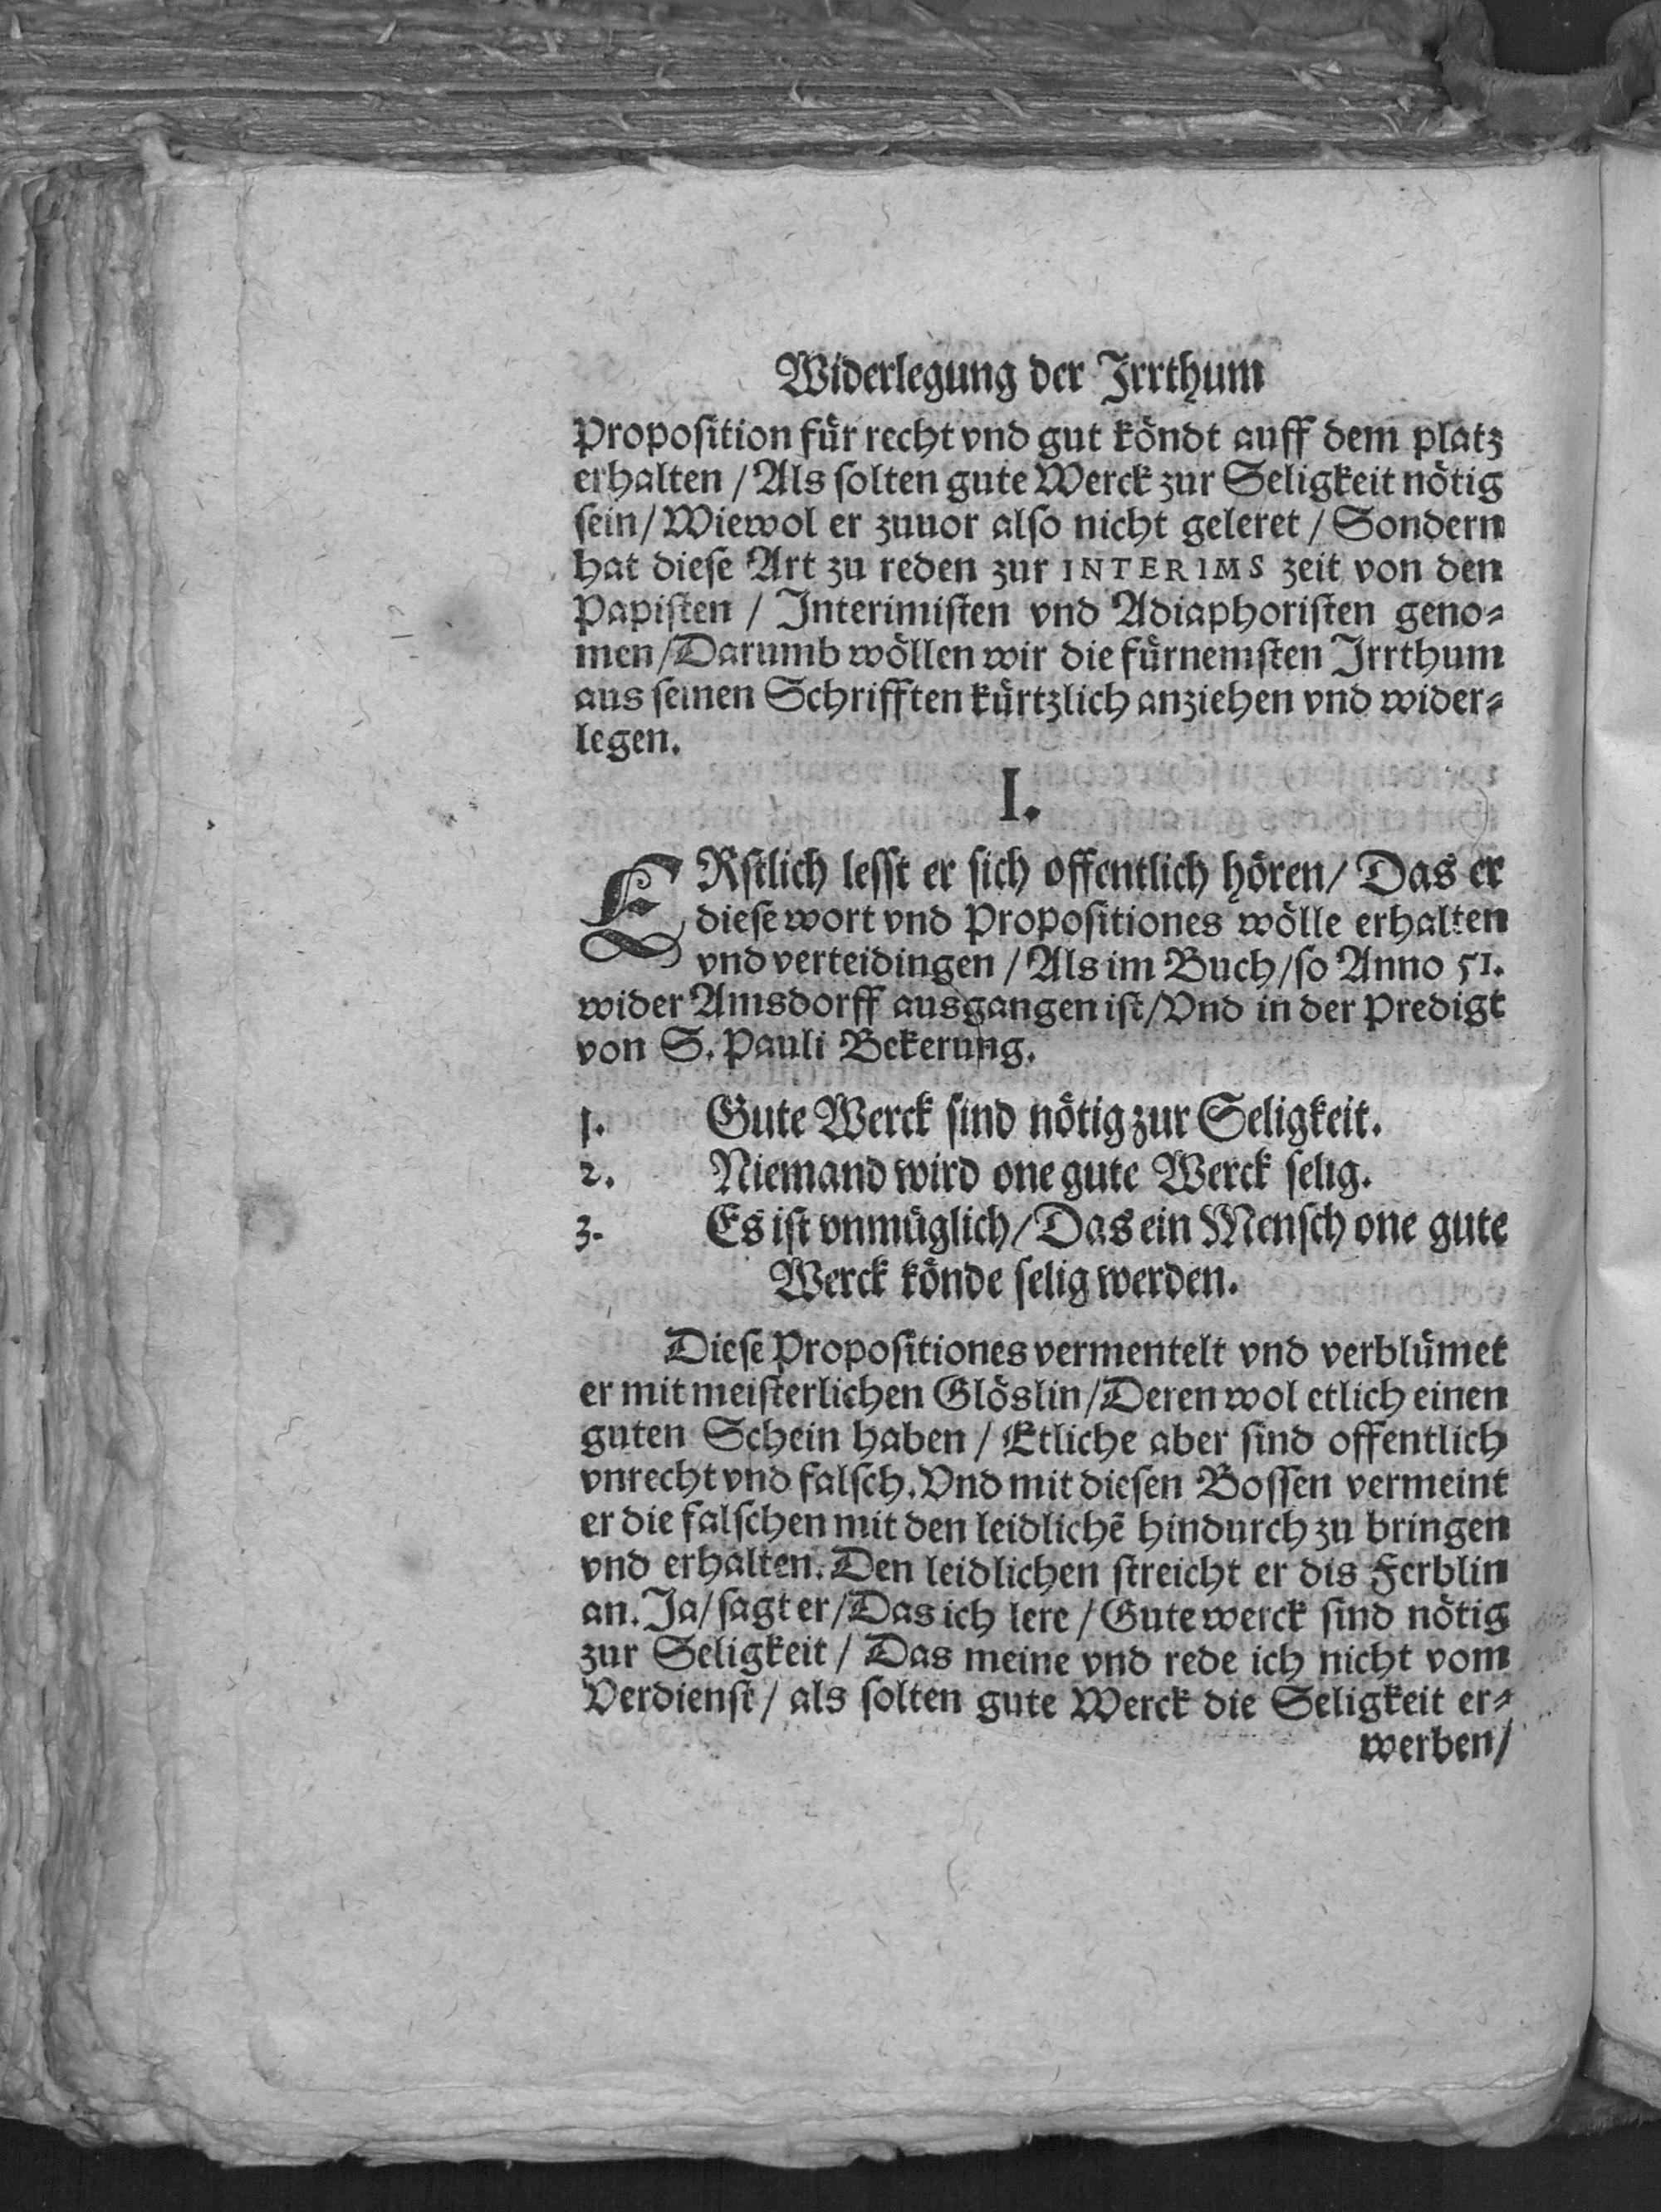 Widerlegung der Jrrthum
Proposition für recht vnd gut köndt auff dem platz
erhalten / Als solten gute Werck zur Seligkeit nötig
sein / Wiewol er zuuor also nicht geleret / Sondern
hat diese Art zu reden zur INTERIMS zeit von den
Papisten / Interimisten vnd Adiaphoristen geno⸗
men / Darumb wöllen wir die fürnemsten Jrrthum
aus seinen Schrifften kürtzlich anziehen vnd wider⸗
legen.
I.
ERstlich lesst er sich offentlich hören / Das er
diese wort vnd Propositiones wölle erhalten
vnd verteidingen / Als im Buch / so Anno 51.
wider Amsdorff ausgangen ist / Vnd in der Predigt
von S. Pauli Bekerung.
1. Gute Werck sind nötig zur Seligkeit.
2. Niemand wird one gute Werck selig.
3. Es ist vnmüglich / Das ein Mensch one gute
Werck könde selig werden.
Diese Propositiones vermentelt vnd verblümet
er mit meisterlichen Glöslin / Deren wol etlich einen
guten Schein haben / Etliche aber sind offentlich
vnrecht vnd falsch. Vnd mit diesen Bossen vermeint
er die falschen mit den leidlichē hindurch zu bringen
vnd erhalten. Den leidlichen streicht er dis Ferblin
an. Ja / sagt er / Das ich lere / Gute werck sind nötig
zur Seligkeit / Das meine vnd rede ich nicht vom
Verdienst / als solten gute Werck die Seligkeit er⸗
werben /